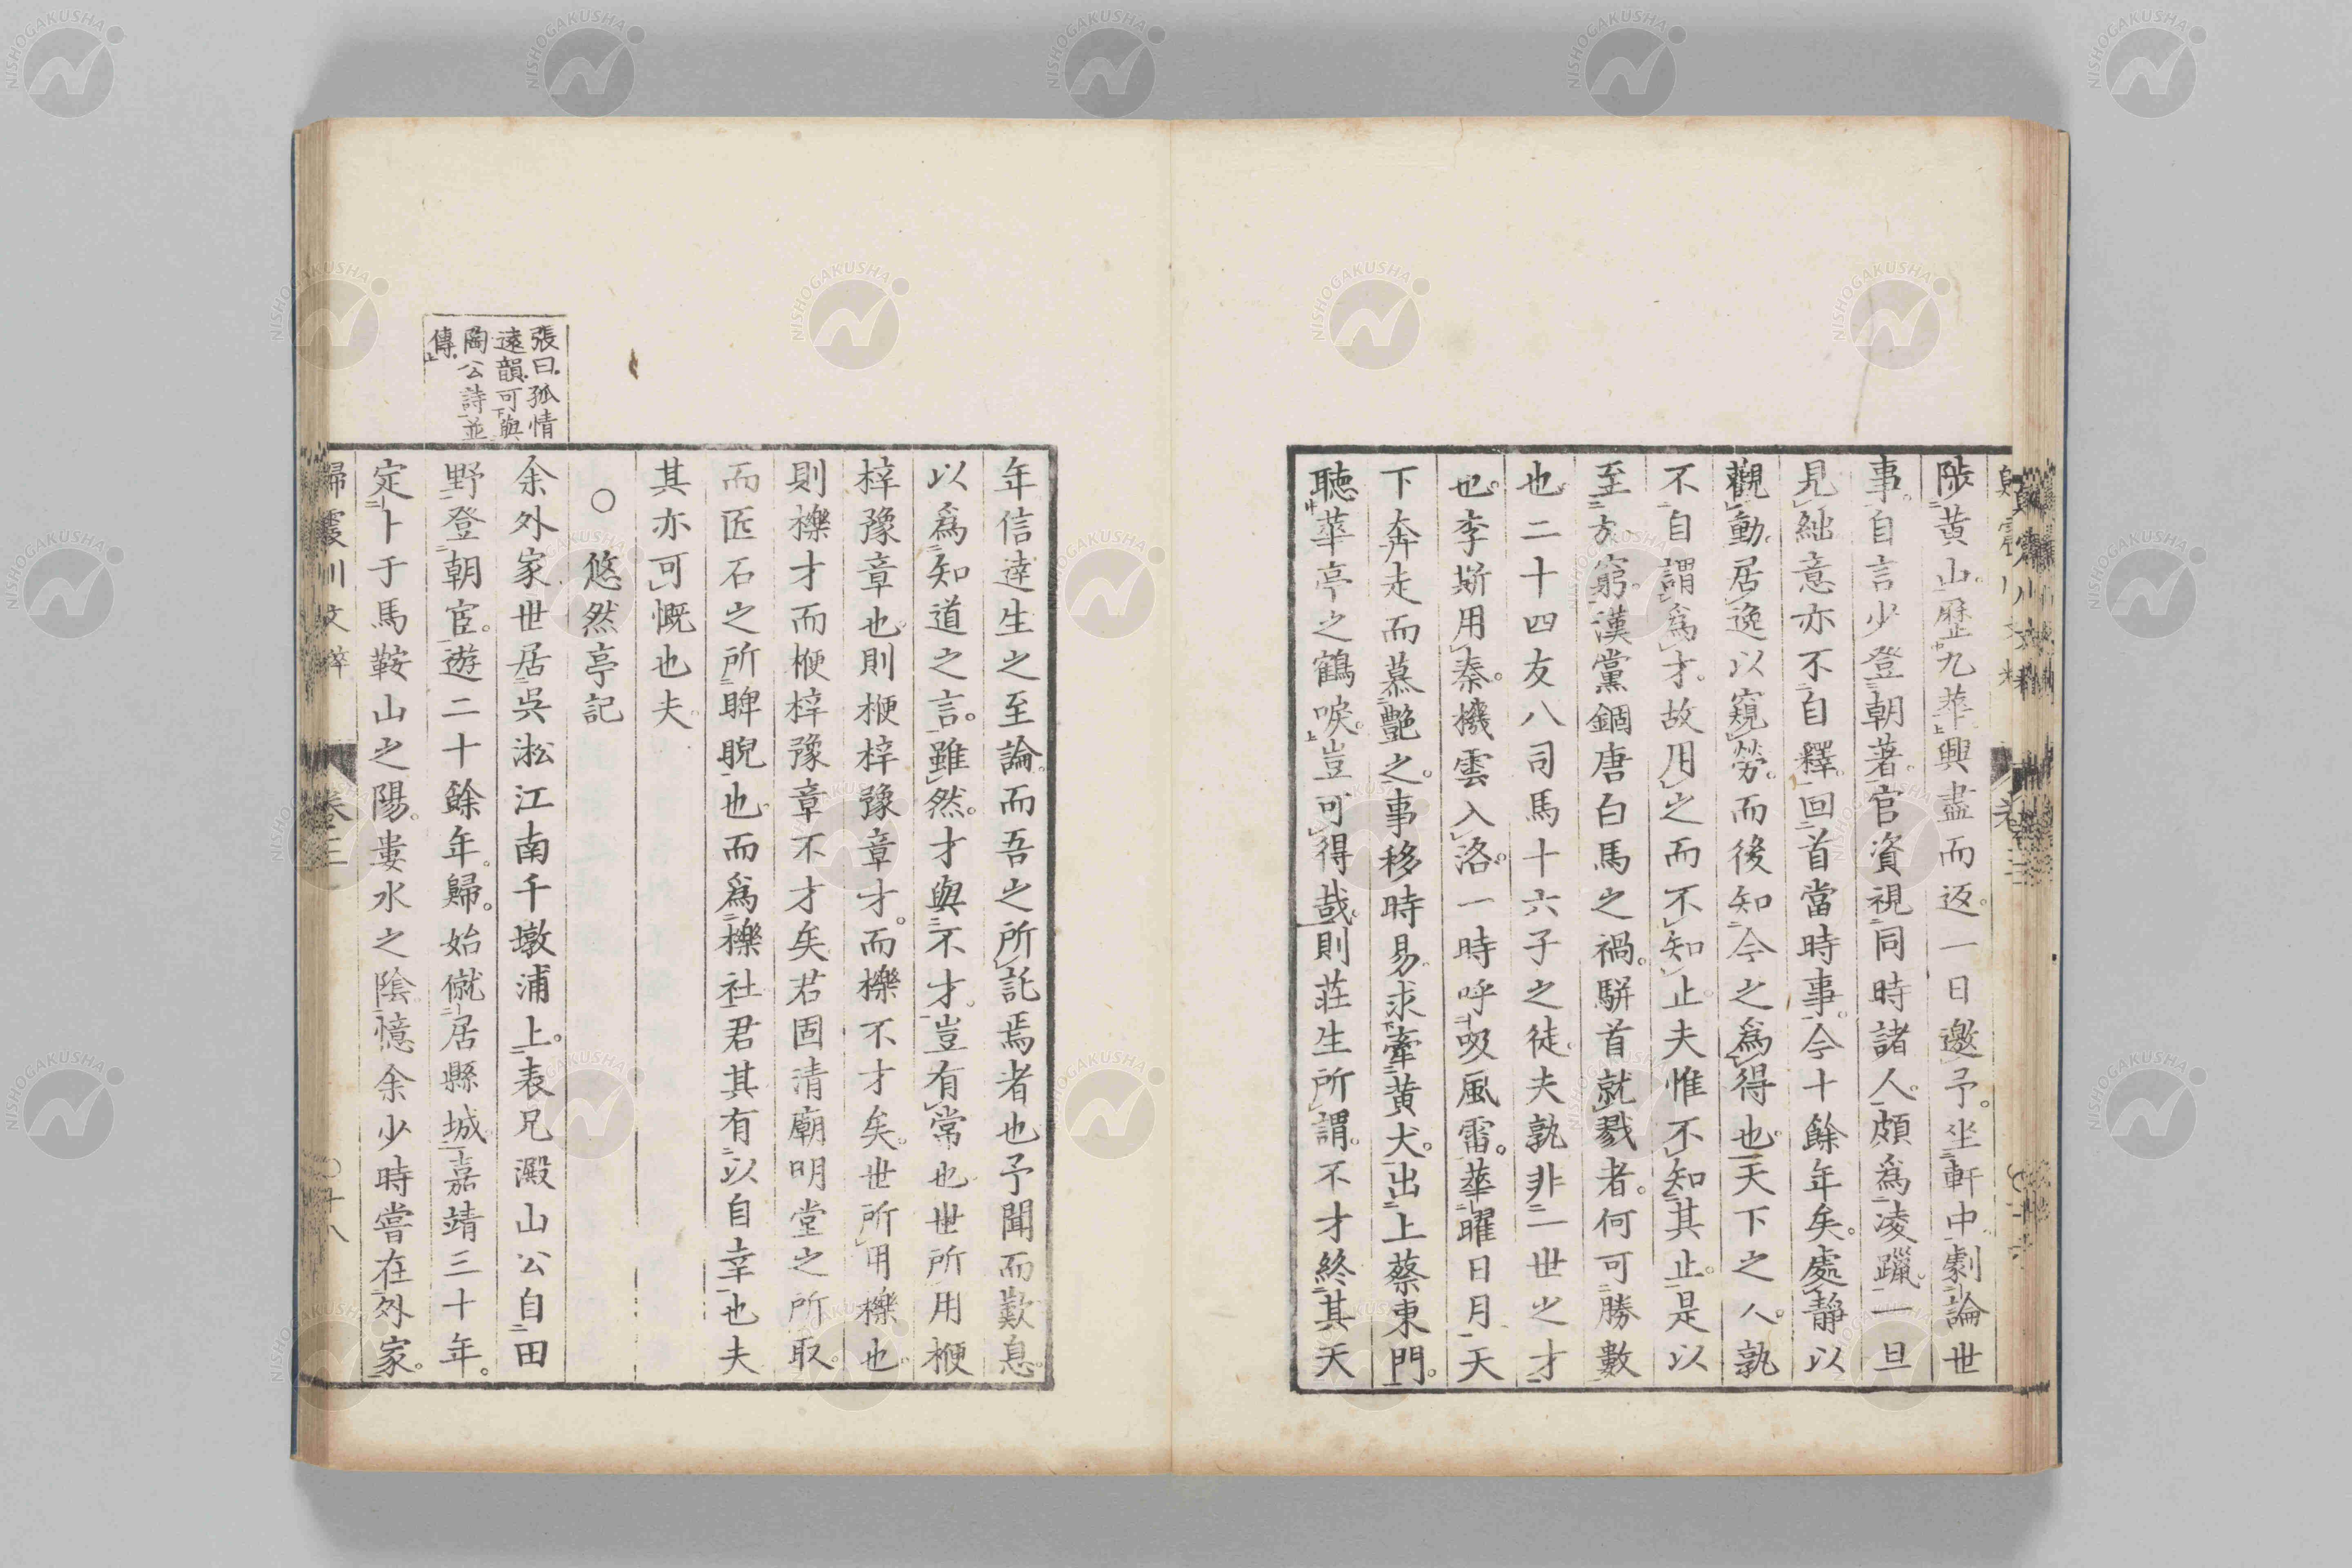 陟黄山歴九華興盡而返一日邀予坐軒中劇論世
事自言少登朝著官資視同時諸人頗為凌躐一旦
見絀意亦不自釋回首當時事今十餘年矣處靜以
觀動居逸以窺勞而後知今之為得也天下之人孰
不自謂為才故用之而不知止夫惟不知其止是以
至於窮漢黨錮唐白馬之禍駢首就戮者何可勝數
也二十四友八司馬十六子之徒夫孰非一世之才
也李斯用秦機雲入洛一時呼吸風雷華曜日月天
下奔走而慕艷之事移時易求牽黄犬出上蔡東門
聴華亭之鶴唳豈可得哉則荘生所謂不才終其天
年信達生之至論而吾之所託焉者也予聞而歎息
以為知道之言雖然才與不才豈有常也世所用楩
梓豫章也則楩梓豫章才而櫟不才矣世所用櫟也
則櫟才而楩梓豫章不才矣君固清廟明堂之所取
而匠石之所睥睨也而為櫟社君其有以自幸也夫
其亦可慨也夫
○悠然亭記
余外家世居吳淞江南千墩浦上表兄澱山公自田
野登朝宦遊二十餘年歸始僦居縣城嘉靖三十年
定卜于馬鞍山之陽婁水之陰憶余少時嘗在外家
張曰孤情
遠韻可與
陶公詩並
傳
歸震川文粹 卷三 ○十八
NISHOGAKUSHA